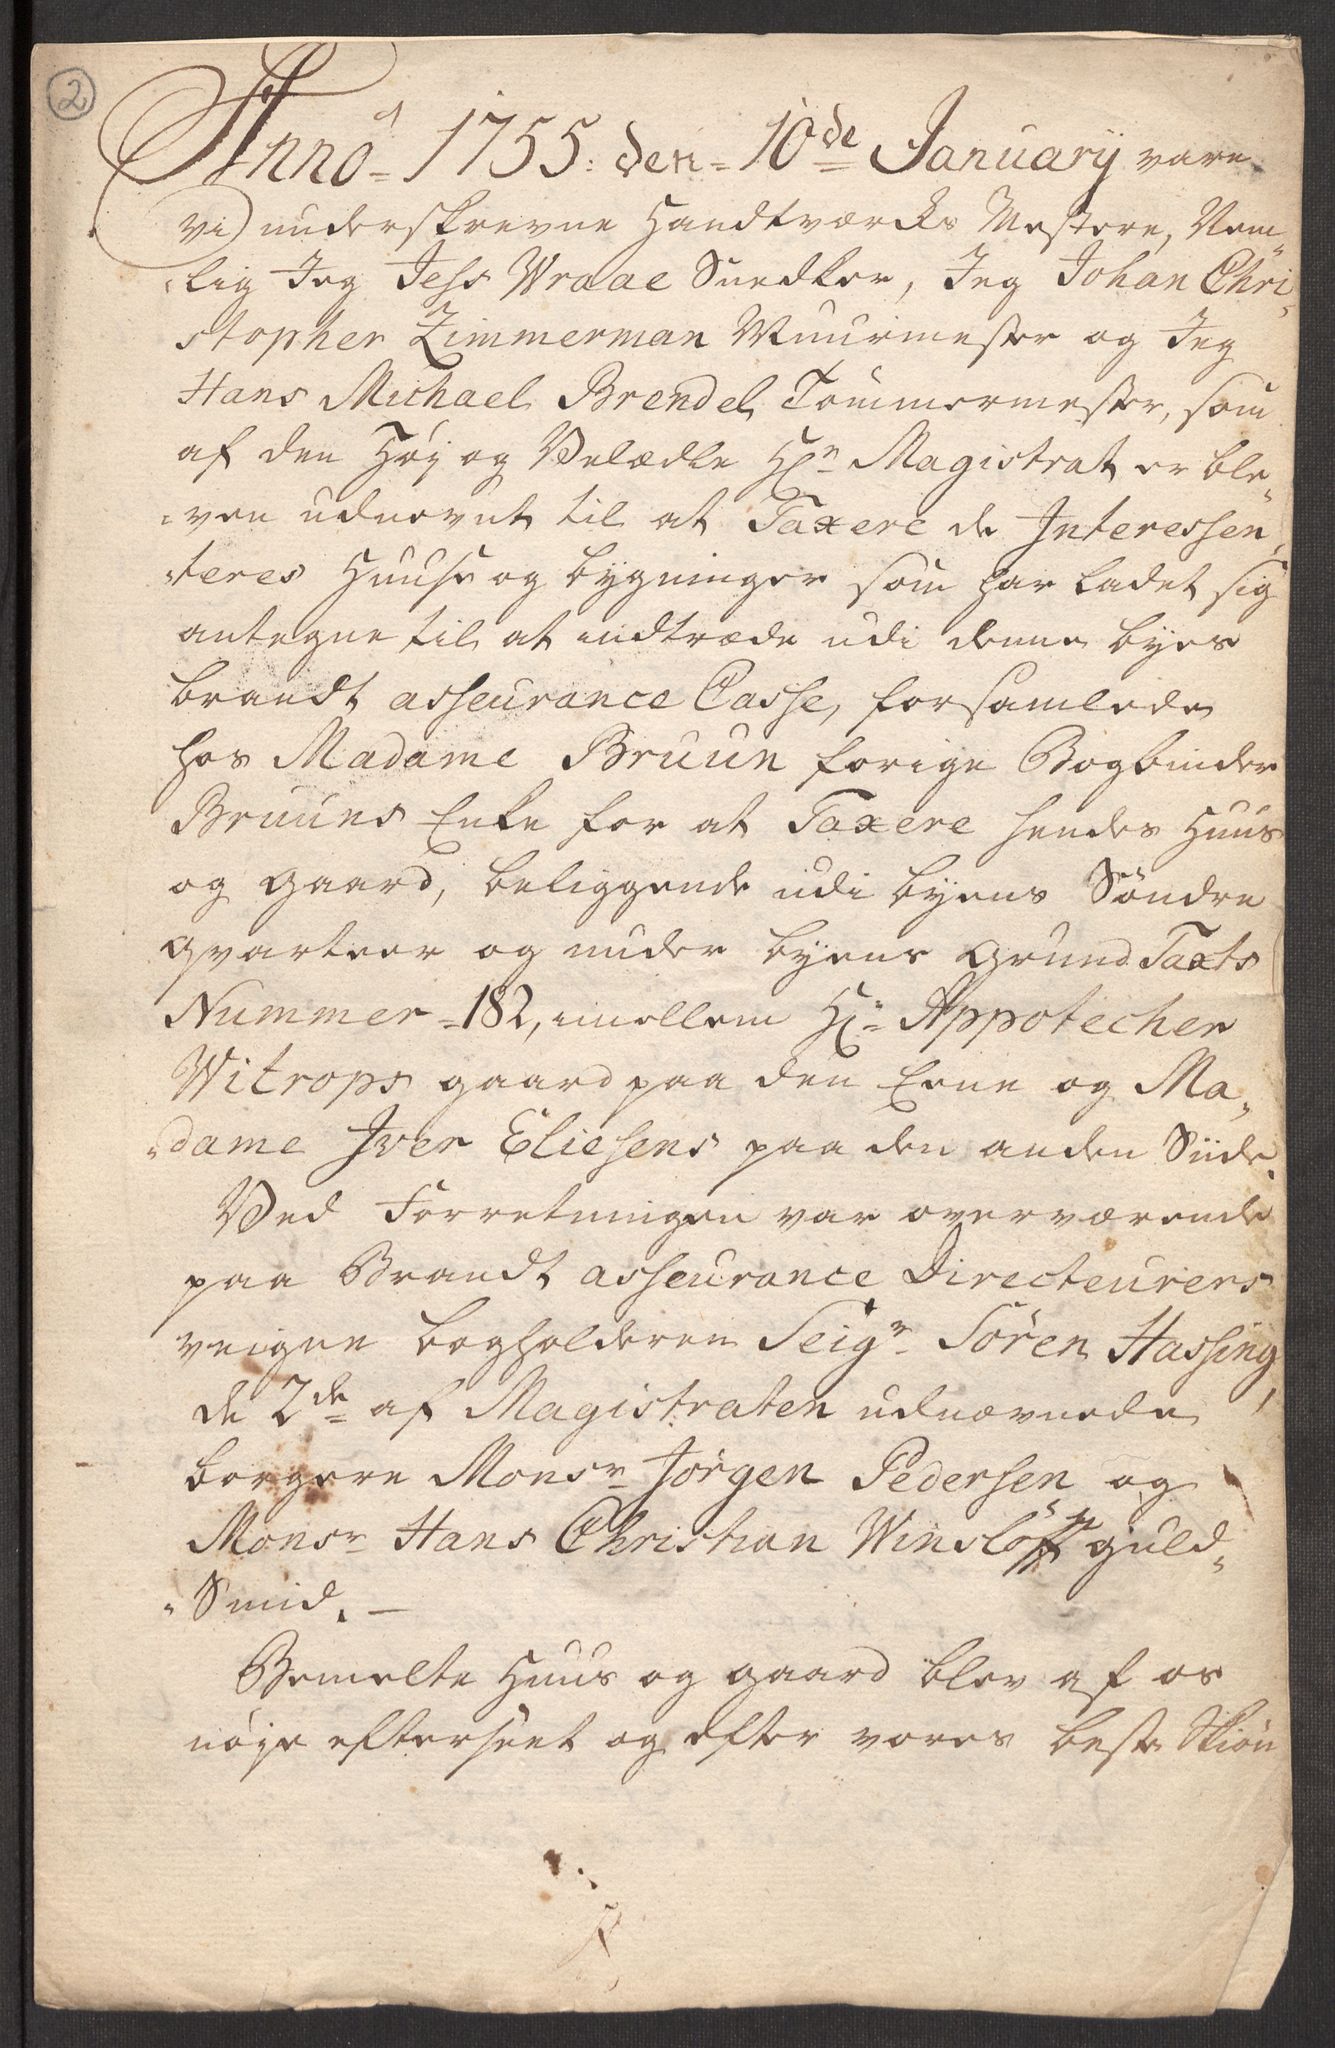 2
Anno 1755: den 10de January vare
vi underskrevne Handtværcks Mestere, Nem„
„lig Jeg Jess Wraae Snedker, Jeg Johan Chri„
stopher Zimmerman Muurmester og Jeg
Hans Michael Brendel Tömmermester, som
af den Høj og Velædle Hrn Magistrat er ble„
„ven udnevnt til at Taxere de Interessen„
„teres Huuse og bygninger som har ladet sig
antegne til at indtræde udi denne byes
brandt asseurance Casse, forsamlede
hos Madame Bruun forige Bogbinder
Bruuns Enke for at Taxere hendes Huus
og gaard, beliggende udi byens Söndre
qvarteer og under byens Grund Taxts
Nummer 182, imellem Hr Appotecher
Witrops gaard paa den Eene og Ma„
„dame Iver Eliesens paa den anden Siide.
Ved Forretningen var overværende
paa Brandt asseurance Directeurers
veigne bogholderen Seigr Sören Hassing,
de 2de af Magistraten udnævnede
borgere Monsr Jörgen Pedersen og
Monsr Hans Christian Winslöff guld„
„Smid. —
Bemelte Huus og gaard blev af os
nöje efterseet og efter vores beste Skiön